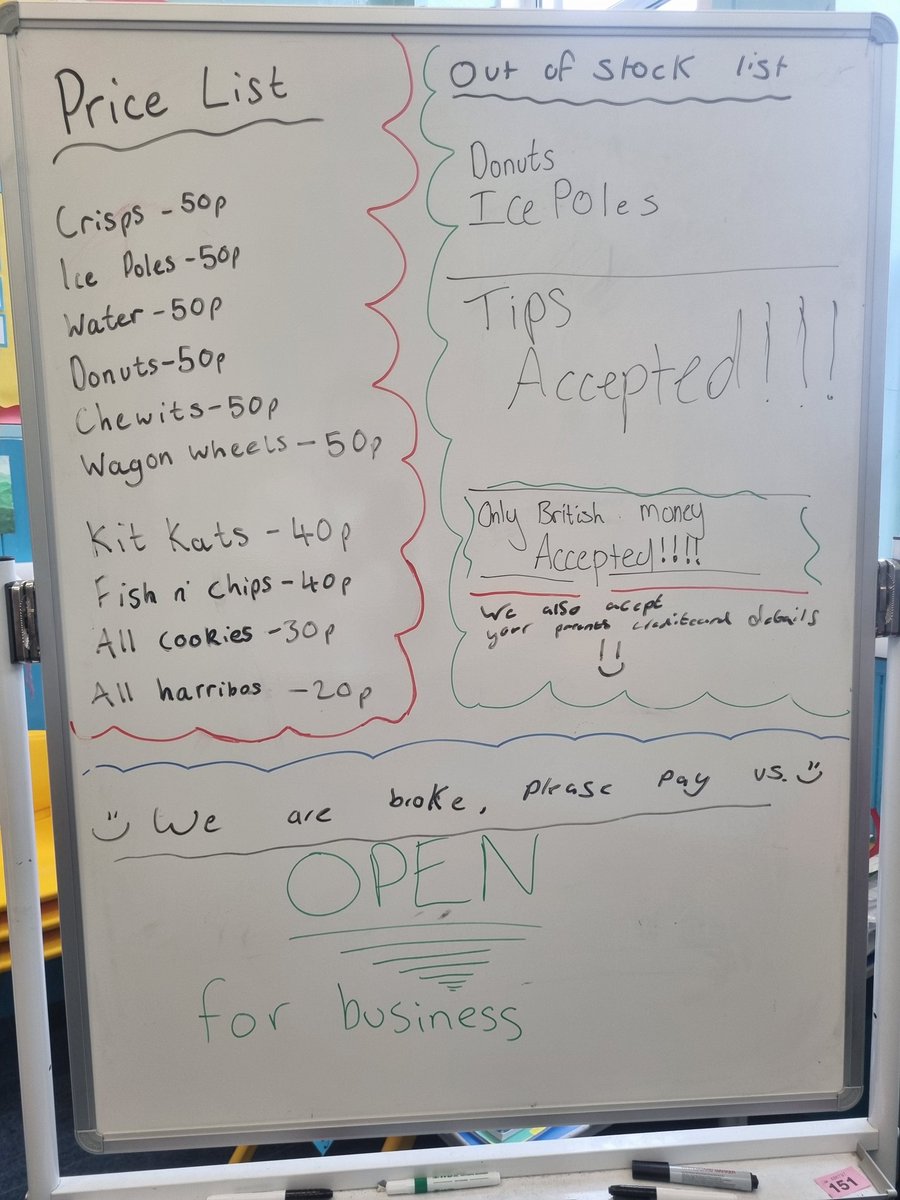 Price List
Crisps - 50p
Ice Poles - 50p
Water - 50p
Donuts - 50p
Chewits - 50p
Wagon wheels - 50p
Kit Kats - 40p
Fish n' chips - 40p
All cookies - 30p
All harribos - 20p
Out of stock list
Donuts
Ice Poles
Tips
Accepted!!!
Only British money
Accepted!!!!
We also accept
your parents creditcard details
We are broke, please pay us.
OPEN
for business
151